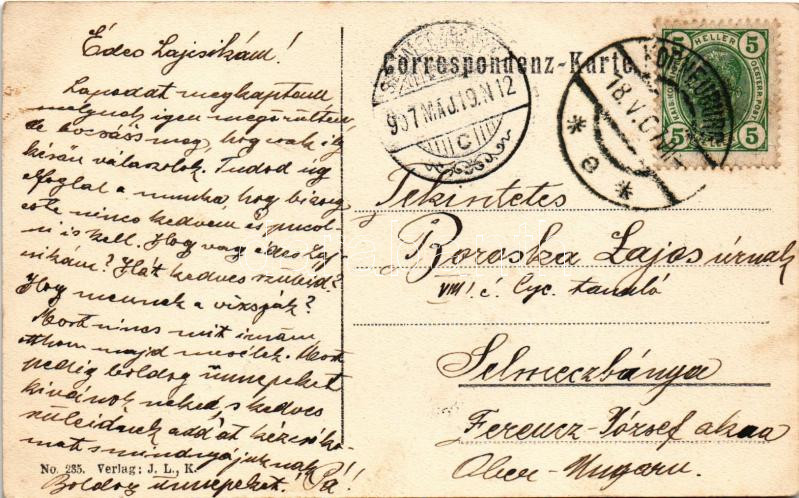 Édes Lajcsikám!
Lapodat megkaptam
melynek igen megörültem
de bocsáss meg, hogy csak így
későn válaszolok. Tudod úgy
elfoglal a munka, hogy bizony
este nincs kedvem és pucol-
ni is kell. Hogy vagy édes Laj-
csikám? Hát kedves szüleid?
Hogy mennek a vizsgák?
Most nincs mit írnom
otthon majd mesélek. Most
pedig boldog ünnepeket
kívánok neked, s kedves
szüleidnek add át kézcsóko-
mat s mindnyájuknak
Boldog ünnepeket. Pá!
No. 235. Verlag: J. L., K.
Correspondenz-Karte
907 MÁJ. 19. N 12
C
KORNEUBURG
18. V. 07
* e *
5 HELLER 5
5 5
Tekintetes
Boroska Lajos úrnak
VIII. é. Gyc. tanuló
Selmeczbánya
Ferencz-József akna
Ober-Ungarn.